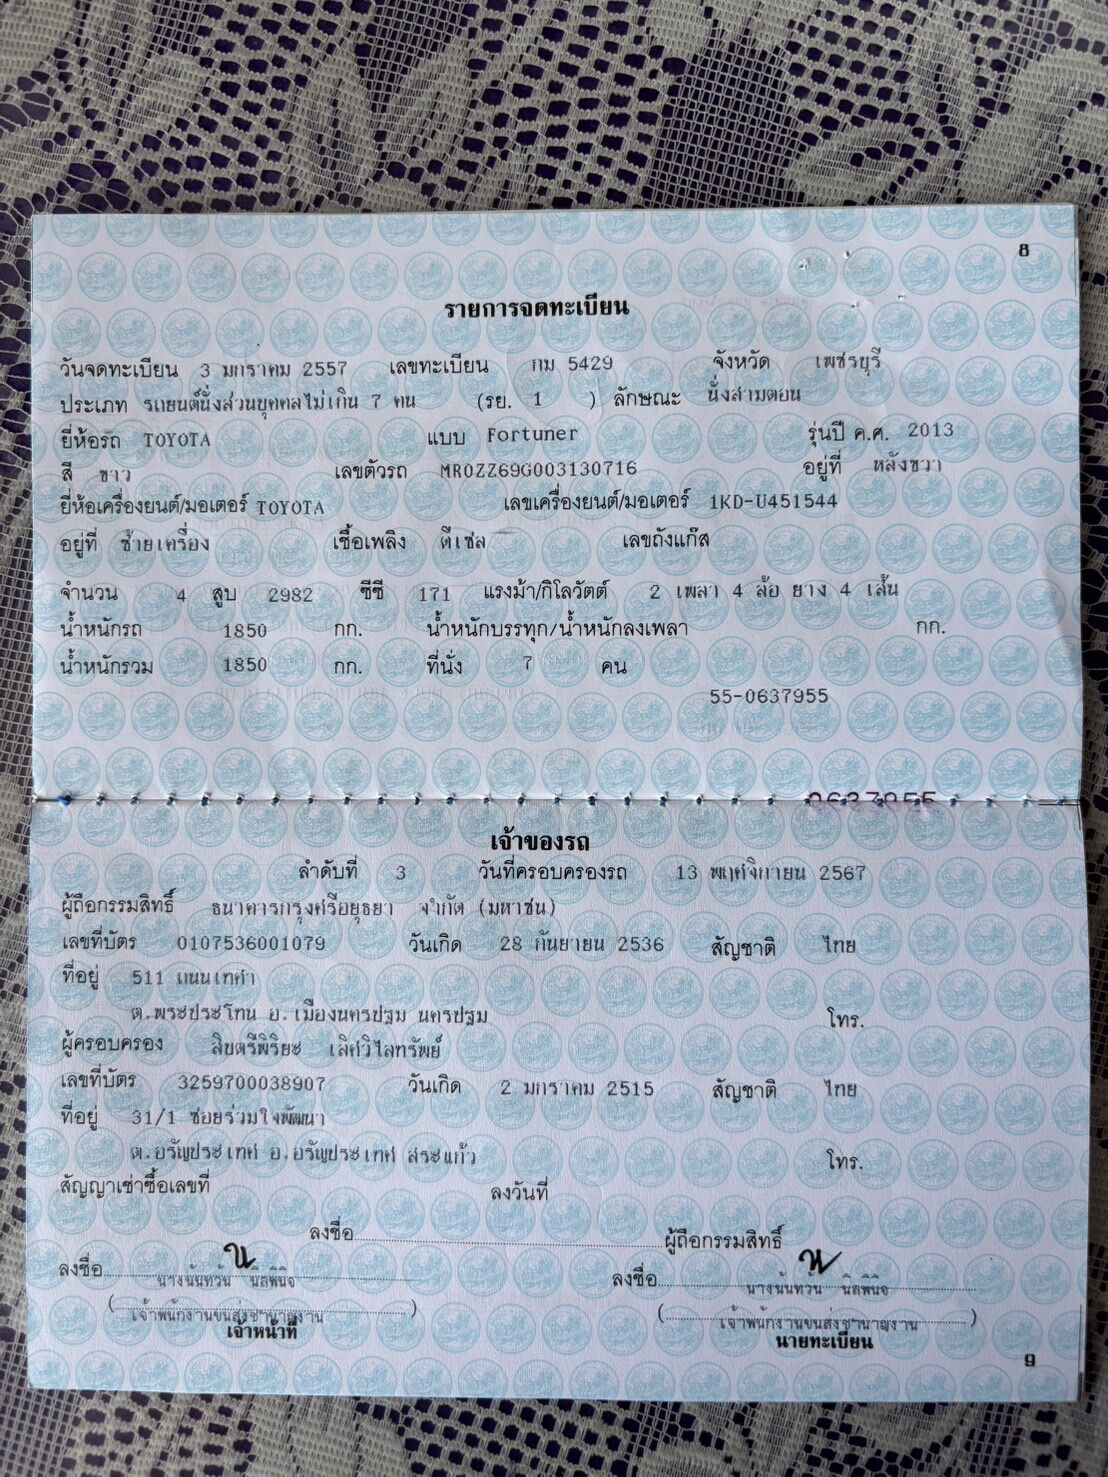 8
รายการจดทะเบียน
วันจดทะเบียน 3 มกราคม 2557 เลขทะเบียน กม 5429 จังหวัด เพชรบุรี
ประเภท รถยนต์นั่งส่วนบุคคลไม่เกิน 7 คน (รย. 1 ) ลักษณะ นั่งสามตอน
ยี่ห้อรถ TOYOTA แบบ Fortuner รุ่นปี ค.ศ. 2013
สี ขาว เลขตัวรถ MR0ZZ69G003130716 อยู่ที่ หลังขวา
ยี่ห้อเครื่องยนต์/มอเตอร์ TOYOTA เลขเครื่องยนต์/มอเตอร์ 1KD-U451544
อยู่ที่ ซ้ายเครื่อง เชื้อเพลิง ดีเซล เลขถังแก๊ส
จำนวน 4 สูบ 2982 ซีซี 171 แรงม้า/กิโลวัตต์ 2 เพลา 4 ล้อ ยาง 4 เส้น
น้ำหนักรถ 1850 กก. น้ำหนักบรรทุก/น้ำหนักลงเพลา กก.
น้ำหนักรวม 1850 กก. ที่นั่ง 7 คน
55-0637955
0637955
เจ้าของรถ
ลำดับที่ 3 วันที่ครอบครองรถ 13 พฤศจิกายน 2567
ผู้ถือกรรมสิทธิ์ ธนาคารกรุงศรีอยุธยา จำกัด (มหาชน)
เลขที่บัตร 0107536001079 วันเกิด 28 กันยายน 2536 สัญชาติ ไทย
ที่อยู่ 511 ถนนเทศา
ต.พระประโทน อ.เมืองนครปฐม นครปฐม โทร.
ผู้ครอบครอง สิบตรีพิริยะ เลิศวิไลทรัพย์
เลขที่บัตร 3259700038907 วันเกิด 2 มกราคม 2515 สัญชาติ ไทย
ที่อยู่ 31/1 ซอยร่วมใจพัฒนา
ต.อรัญประเทศ อ.อรัญประเทศ สระแก้ว โทร.
สัญญาเช่าซื้อเลขที่ ลงวันที่
ลงชื่อ ผู้ถือกรรมสิทธิ์
ลงชื่อ นางนันทวัน นิลพินิจ ลงชื่อ นางนันทวัน นิลพินิจ
(เจ้าพนักงานขนส่งชำนาญงาน) (เจ้าพนักงานขนส่งชำนาญงาน)
เจ้าหน้าที่ นายทะเบียน
9